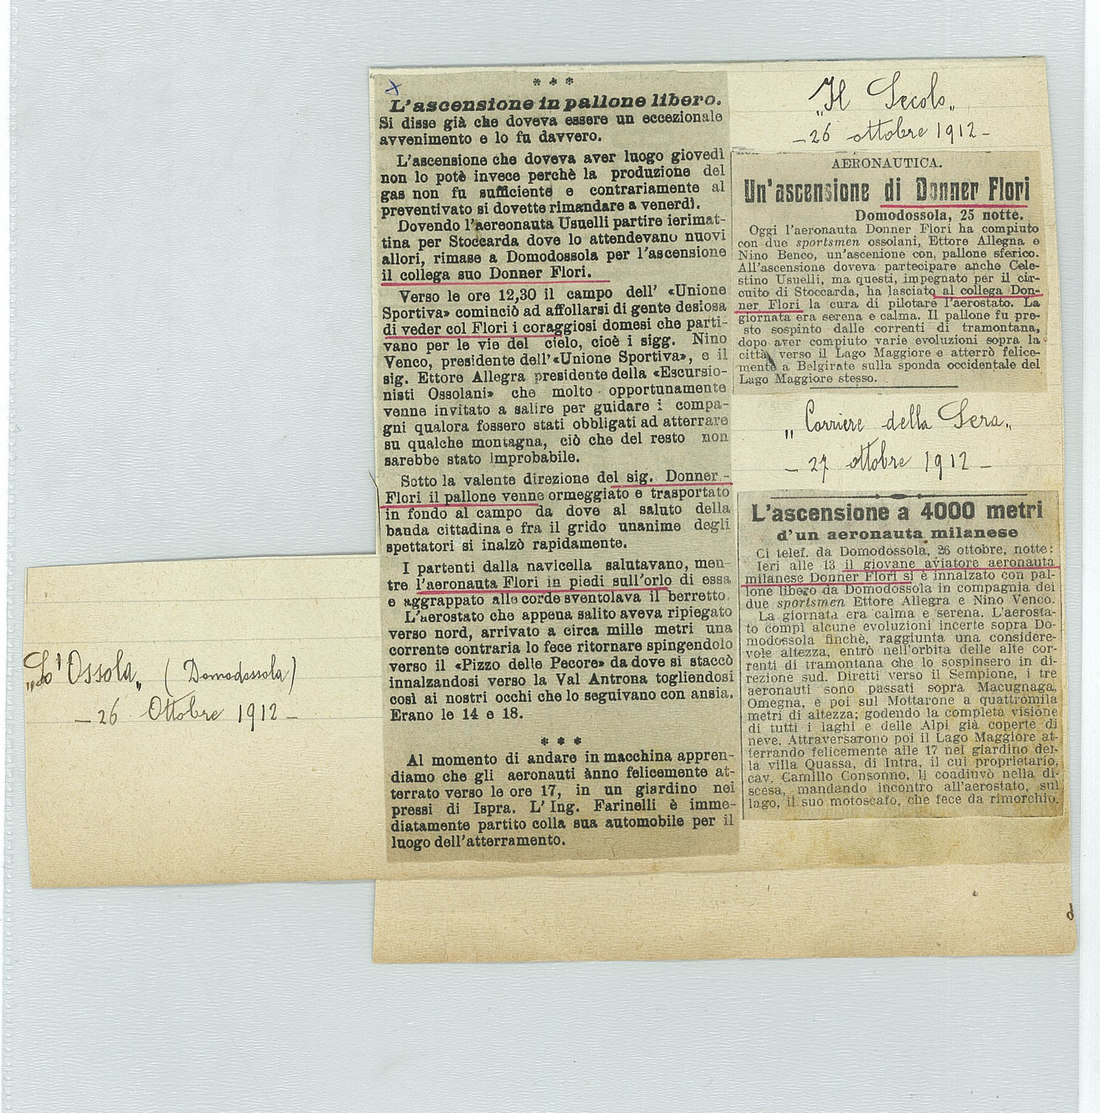 * * *
L'ascensione in pallone libero.
Si disse già che doveva essere un eccezionale
avvenimento e lo fu davvero.
L'ascensione che doveva aver luogo giovedì
non lo potè invece perchè la produzione del
gas non fu sufficiente e contrariamente al
preventivato si dovette rimandare a venerdì.
Dovendo l'aereonauta Usuelli partire ierimat-
tina per Stoccarda dove lo attendevano nuovi
allori, rimase a Domodossola per l'ascensione
il collega suo Donner Flori.
Verso le ore 12,30 il campo dell' «Unione
Sportiva» cominciò ad affollarsi di gente desiosa
di veder col Flori i coraggiosi domesi che parti-
vano per le vie del cielo, cioè i sigg. Nino
Venco, presidente dell'«Unione Sportiva», e il
sig. Ettore Allegra presidente della «Escursio-
nisti Ossolani» che molto opportunamente
venne invitato a salire per guidare i compa-
gni qualora fossero stati obbligati ad atterrare
su qualche montagna, ciò che del resto non
sarebbe stato improbabile.
Sotto la valente direzione del sig. Donner-
Flori il pallone venne ormeggiato e trasportato
in fondo al campo da dove al saluto della
banda cittadina e fra il grido unanime degli
spettatori si inalzò rapidamente.
I partenti dalla navicella salutavano, men-
tre l'aeronauta Flori in piedi sull'orlo di essa
e aggrappato alle corde sventolava il berretto.
L'aerostato che appena salito aveva ripiegato
verso nord, arrivato a circa mille metri una
corrente contraria lo fece ritornare spingendolo
verso il «Pizzo delle Pecore» da dove si staccò
innalzandosi verso la Val Antrona togliendosi
così ai nostri occhi che lo seguivano con ansia.
Erano le 14 e 18.
* * *
Al momento di andare in macchina appren-
diamo che gli aeronauti ànno felicemente at-
terrato verso le ore 17, in un giardino nei
pressi di Ispra. L' Ing. Farinelli è imme-
diatamente partito colla sua automobile per il
luogo dell'atterramento.
„L'Ossola„ (Domodossola)
- 26 Ottobre 1912 -
„Il Secolo„
- 26 ottobre 1912 -
AERONAUTICA.
Un'ascensione di Donner Flori
Domodossola, 25 notte.
Oggi l'aeronauta Donner Flori ha compiuto
con due sportsmen ossolani, Ettore Allegna e
Nino Benco, un'ascenione con, pallone sferico.
All'ascensione doveva partecipare anche Cele-
stino Usuelli, ma questi, impegnato per il cir-
cuito di Stoccarda, ha lasciato al collega Don-
ner Flori la cura di pilotare l'aerostato. La
giornata era serena e calma. Il pallone fu pre-
sto sospinto dalle correnti di tramontana,
dopo aver compiuto varie evoluzioni sopra la
città verso il Lago Maggiore e atterrò felice-
mente a Belgirate sulla sponda occidentale del
Lago Maggiore stesso.
„Corriere della Sera„
- 27 ottobre 1912 -
L'ascensione a 4000 metri
d'un aeronauta milanese
Ci telef. da Domodossola, 26 ottobre, notte:
Ieri alle 13 il giovane aviatore aeronauta
milanese Donner Flori si è innalzato con pal-
lone libero da Domodossola in compagnia dei
due sportsmen Ettore Allegra e Nino Venco.
La giornata era calma e serena. L'aerosta-
to compì alcune evoluzioni incerte sopra Do-
modossola finchè, raggiunta una considere-
vole altezza, entrò nell'orbita delle alte cor-
renti di tramontana che lo sospinsero in di-
rezione sud. Diretti verso il Sempione, i tre
aeronauti sono passati sopra Macugnaga,
Omegna, e poi sul Mottarone a quattromila
metri di altezza; godendo la completa visione
di tutti i laghi e delle Alpi già coperte di
neve. Attraversarono poi il Lago Maggiore at-
terrando felicemente alle 17 nel giardino del-
la villa Quassa, di Intra, il cui proprietario,
cav. Camillo Consonno, li coadiuvò nella di-
scesa, mandando incontro all'aerostato, sul
lago, il suo motoscafo, che fece da rimorchio.